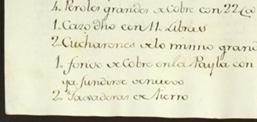 4. Peroles grandes de Cobre con 22 Lo
1. Cazo dho con 11. Libras
2. Cucharones de lo mismo grand
1. fondo de Cobre en la Payla con
ya fundirse de nuevo
2. Pasaderas de Hierro